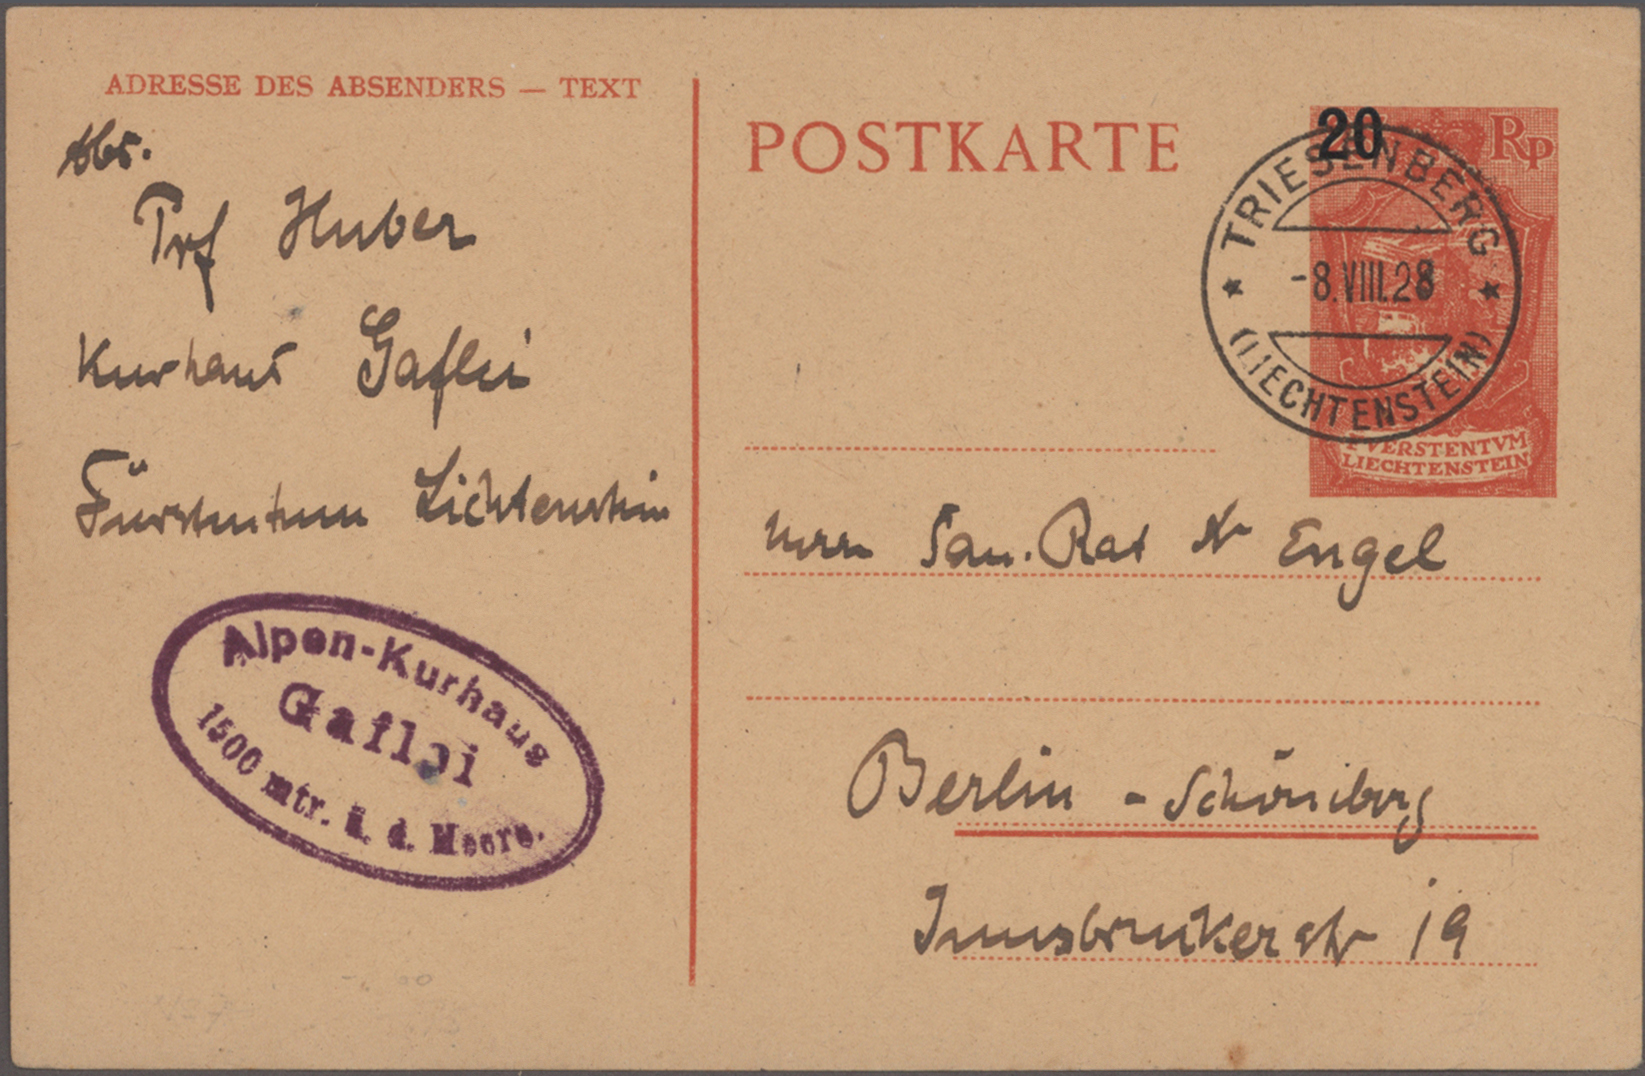 ADRESSE DES ABSENDERS — TEXT
Abs.
Prf Huber
Kurhaus Gaflei
Fürstentum Lichtenstein
Alpen-Kurhaus
Gaflei
1500 mtr. ü. d. Meere.
POSTKARTE
20 Rp
TRIESENBERG
-8.VIII.28
(LIECHTENSTEIN)
FVERSTENTVM
LIECHTENSTEIN
Herrn San. Rat Dr Engel
Berlin - Schöneberg
Innsbruckerstr 19